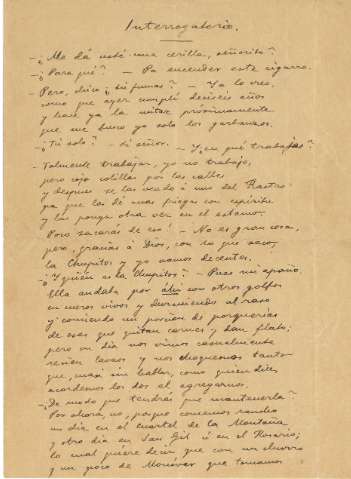 Interrogatorio.
- ¿Me dá usté una cerilla, señorito?
- ¿Para qué? - Pa encender este cigarro.
- Pero, chico ¿tú fumas? - Ya lo creo,
como que ayer cumplí dieciseis años
y hace ya la mitaz próximamente
que me busco yo solo los garbanzos.
- ¿Tú solo? - Sí señor. - Y ¿en qué trabajas?
- Talmente trabajar, yo no trabajo,
pero cojo colillas por las calles
y después se las vendo á uno del Rastro
pa que las dé unas friegas con espíritu
y las ponga otra vez en el estanco.
- Poco sacarás de eso! - No es gran cosa,
pero, gracias á Dios, con lo que saco,
la Chupitos y yo vamos decentes.
- ¿Y quién es la Chupitos? - Pues mi apaño.
Ella andaba por áhi con otros golfos
en cueros vivos y durmiendo al raso
y comiendo un porción de porquerías
de esas que quitan carnes y dan flato;
pero un día nos vimos casualmente
recién lavaos y nos choquemos tanto
que, casi sin hablar, como quien dice,
acordemos los dos el agregarnos.
- De modo que tendrás que mantenerla?
- Por ahora, no, porque comemos rancho
un día en el cuartel de la Montaña
y otro día en San Gil ó en el Rosario;
lo cual quiere decir que con un churro
y un poco de Monóvar que tomamos